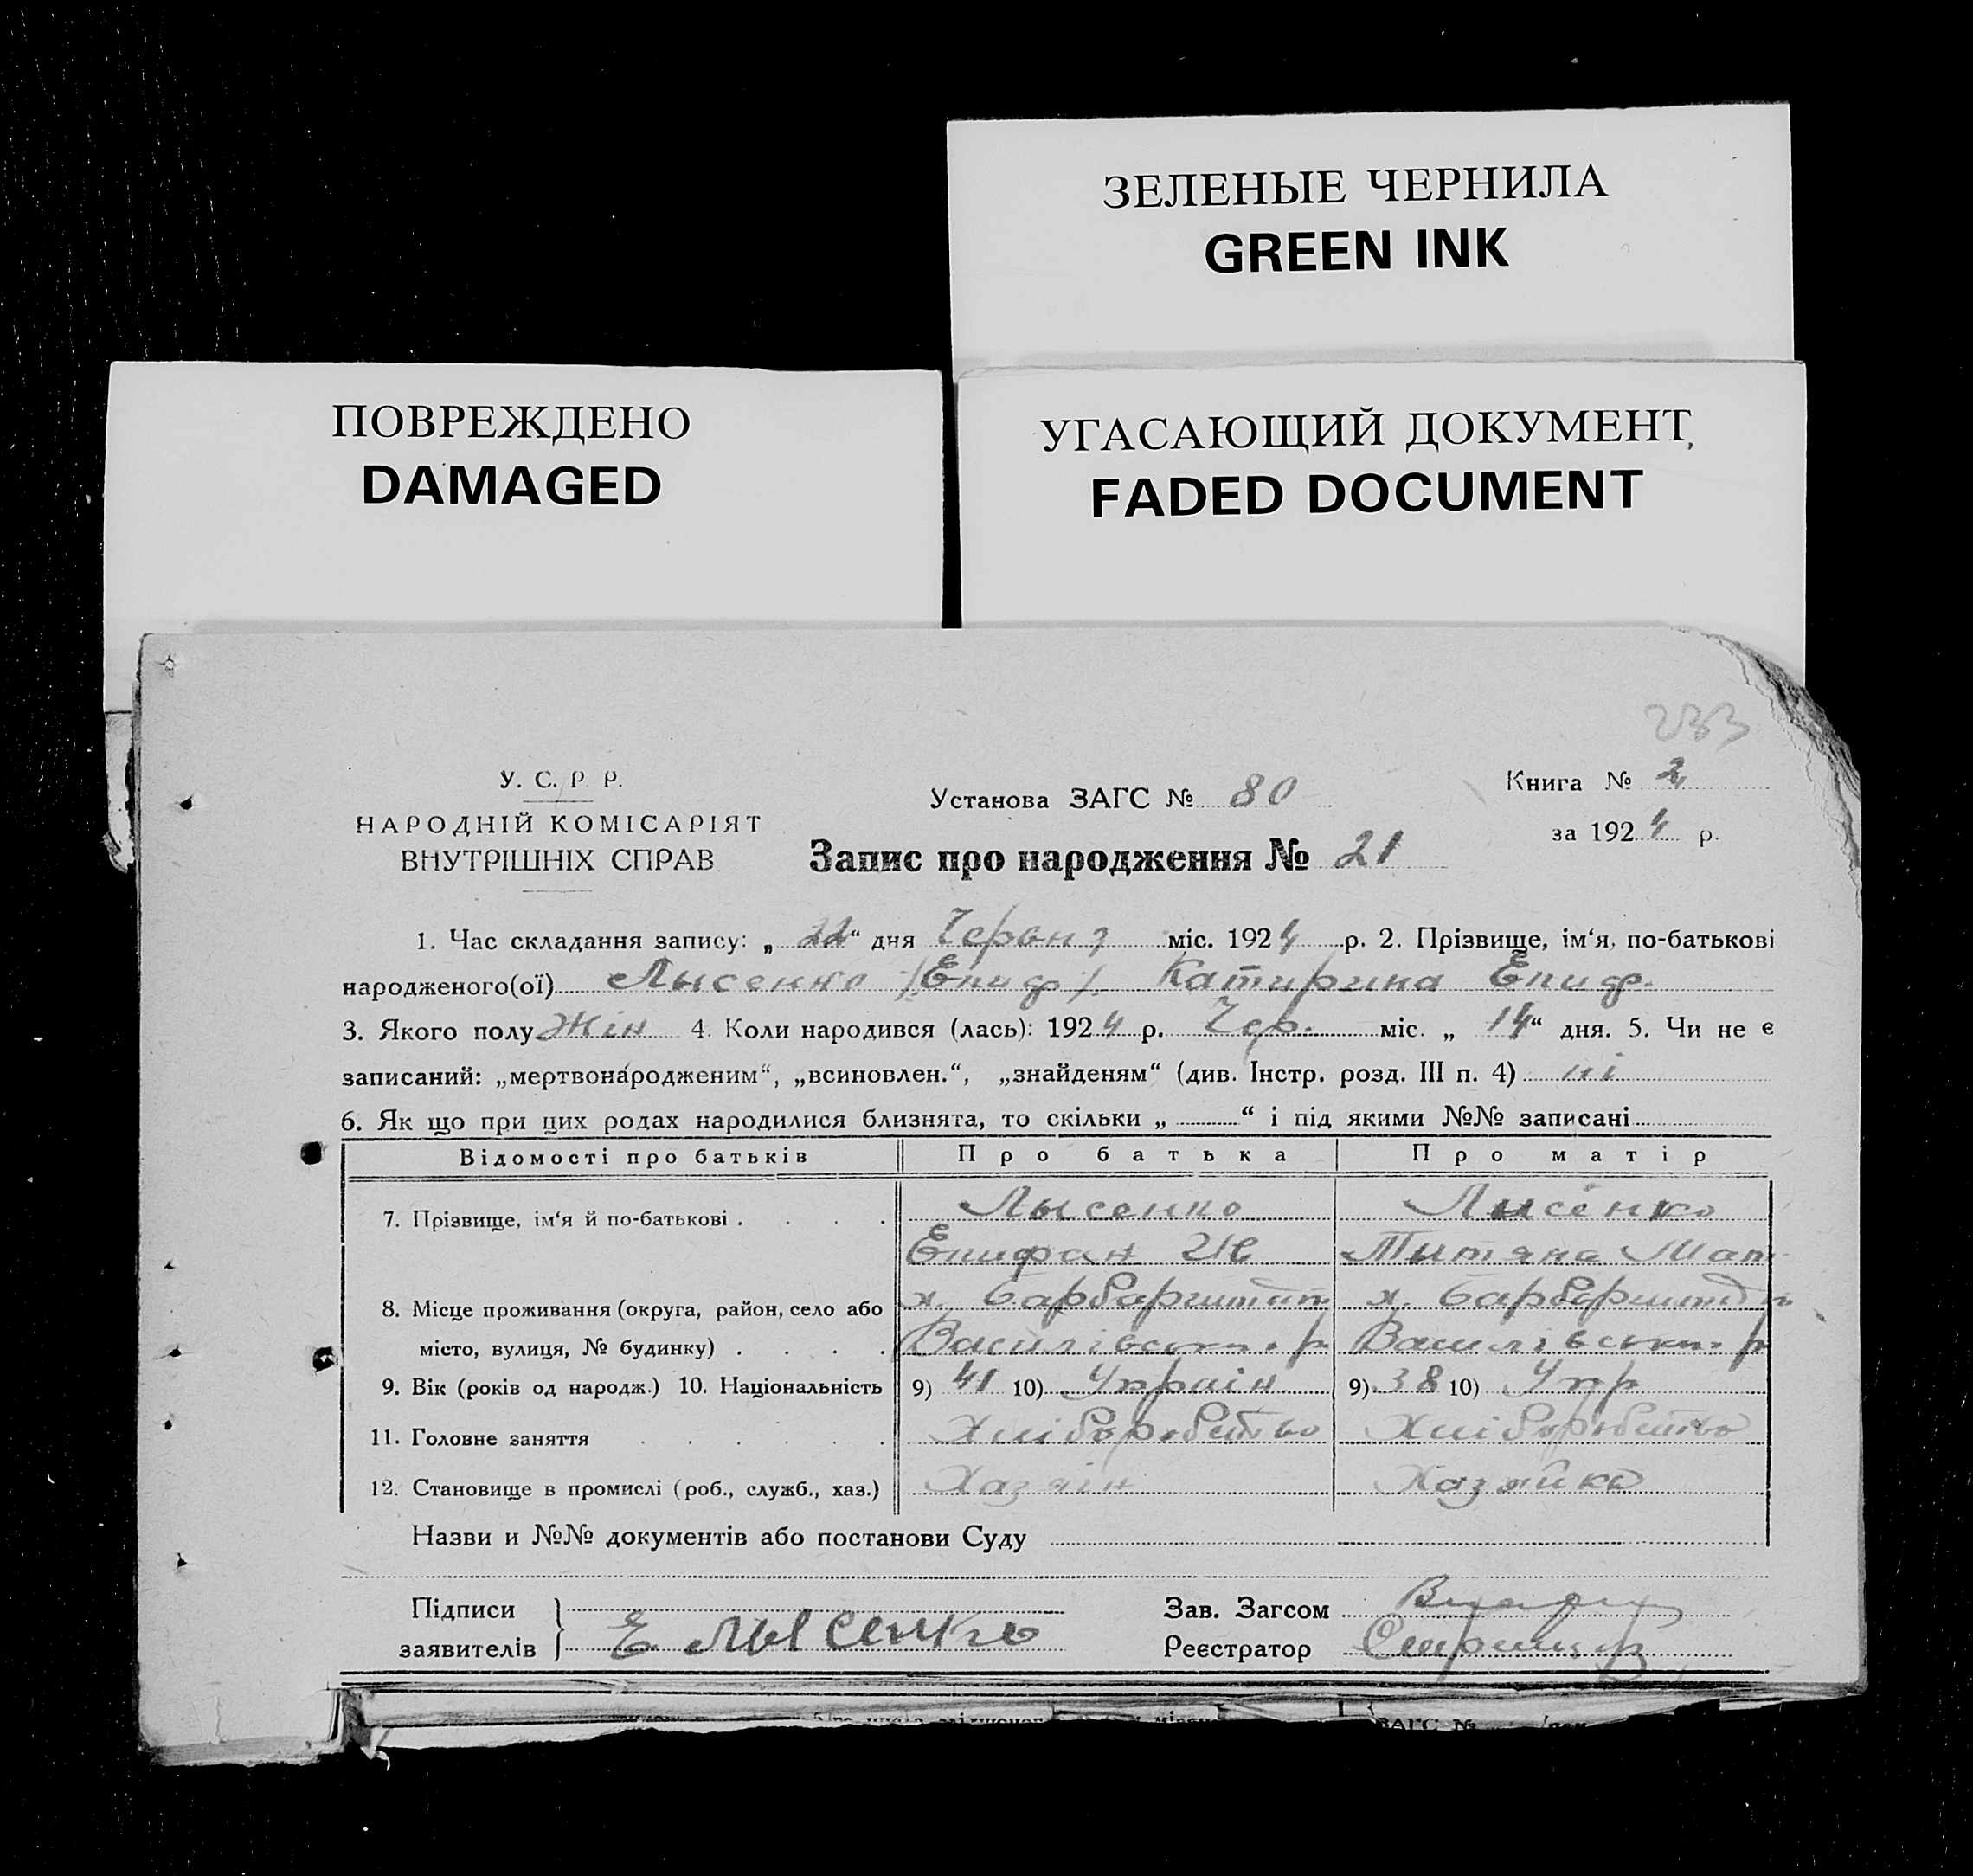 ЗЕЛЕНЫЕ ЧЕРНИЛА
GREEN INK
ПОВРЕЖДЕНО
DAMAGED
УГАСАЮЩИЙ ДОКУМЕНТ
FADED DOCUMENT
233
У. С. Р. Р.
НАРОДНІЙ КОМІСАРІЯТ
ВНУТРІШНІХ СПРАВ
Установа ЗАГС № 80
Запис про народження № 21
Книга № 2
за 1924 р.
1. Час складання запису: „ 22 “ дня Червня міс. 1924 р. 2. Прізвище, ім‘я, по-батькові
народженого(ої) Лысенко /Епиф/. Катирина Епиф.
3. Якого полу Жін 4. Коли народився (лась): 1924 р. Чер. міс. „ 14 “ дня. 5. Чи не є
записаний: „мертвонародженим“, „всиновлен.“, „знайденям“ (див. Інстр. розд. III п. 4) ні
6. Як що при цих родах народилися близнята, то скільки „ “ і під якими №№ записані
Відомості про батьків Про батька Про матір
7. Прізвище, ім‘я й по-батькові . . . . Лысенко Лысенко
Епифан Ив Титяна Мат
8. Місце проживання (округа, район, село або х. х.
місто, вулиця, № будинку) . . . . Василівськ. р Василівськ. р
9. Вік (років од народж.) 10. Національність 9) 41 10) Украін 9) 38 10) Укр
11. Головне заняття . . . . . . Хліборобство Хліборобство
12. Становище в промислі (роб., служб., хаз.) Хазяін Хазяйка
Назви и №№ документів або постанови Суду
Підписи
заявителів Е Лысенко
Зав. Загсом
Реєстратор
ЗАГС №